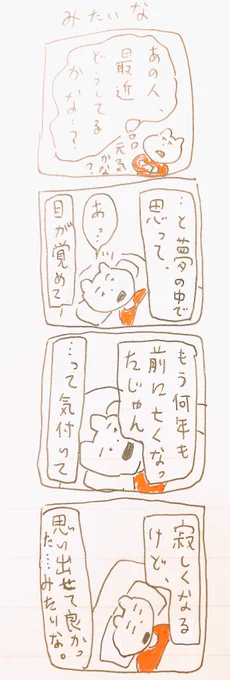 みたいな
あの人、
最近
どうしてる
かな…?
元気
かな?
…と夢の中で
思って、
あっ…
目が覚めて
もう何年も
前に亡くなっ
たじゃん
…って気付いて
寂しくなる
けど、
思い出せて良かっ
た…みたいな。